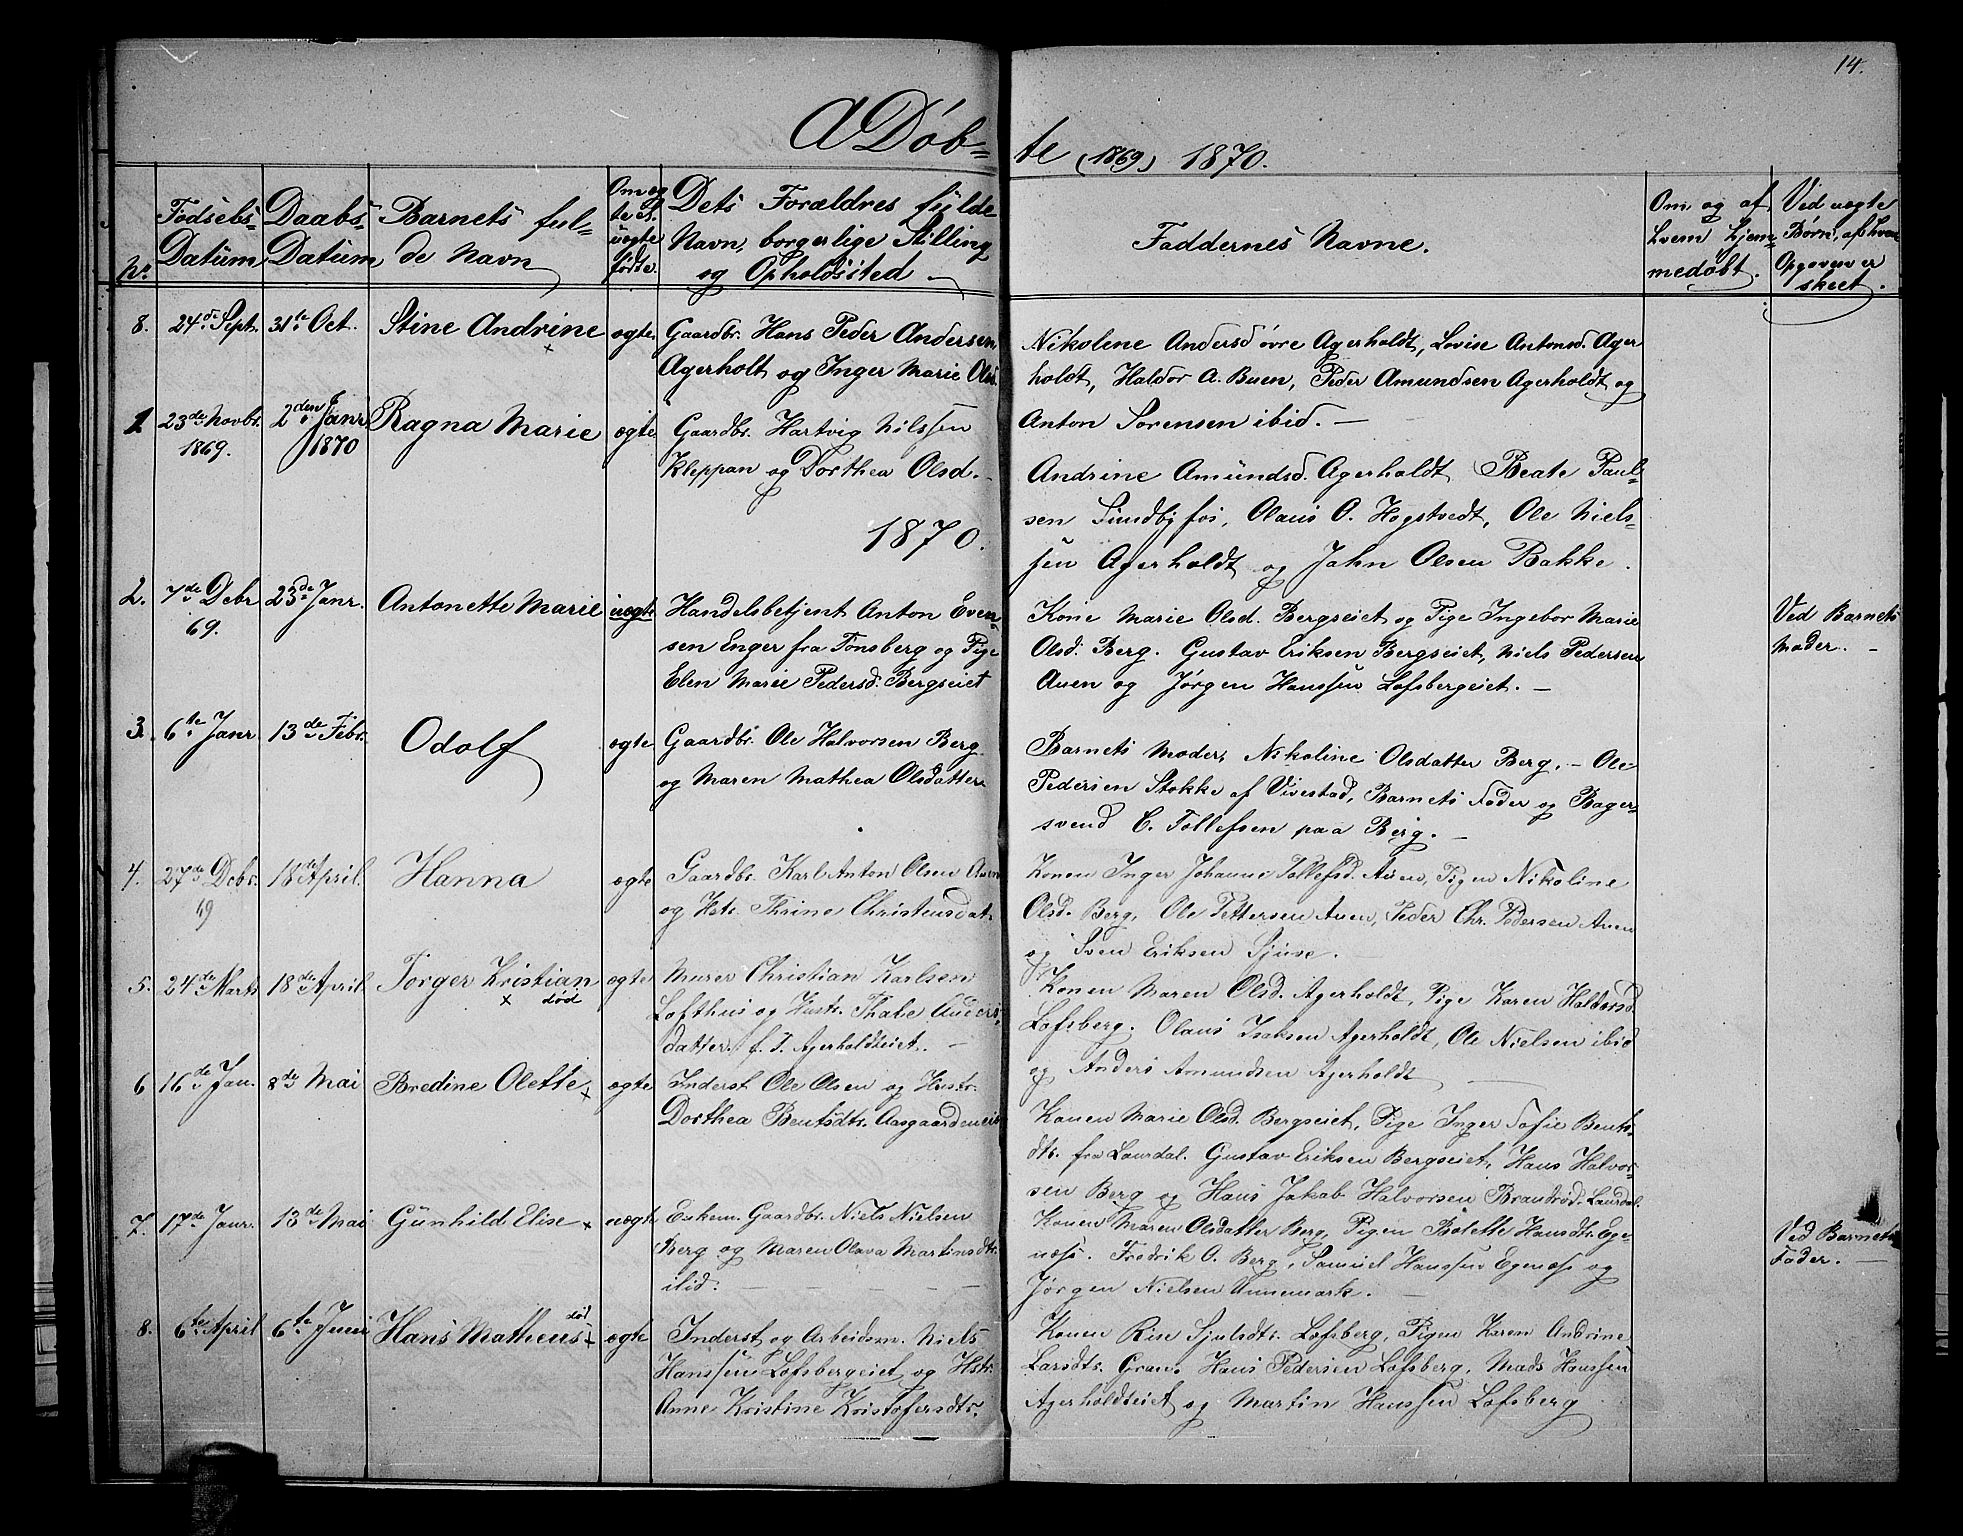 14.
A Döb=
te (1869) 1870.
No.
Födsels-
Datum
Daabs-
Datum
Barnets ful-
de Navn
Om æg
te el.
uægte
födte.
Dets Forældres fulde
Navn, borgerlige Stilling
og Opholdssted
Faddernes Navne.
Om og af
hvem hjem=
medöbt.
Ved uægte
Börn, af hvem
Opgaven er
skeet.
8. 24de Sept. 31te Oct. Stine Andrine ægte
Gaardbr. Hans Peder Andersen
Agerholt og Inger Marie Olsd.
Nikoline Andersd övre Agerholdt, Lovise Antonsd. Ager
holdt, Haldor A. Buen, Peder Amundsen Agerholdt og
Anton Sörensen ibid. —
1 23de Novbr. 2den Janr Ragna Marie ægte
1869. 1870
Gaardbr. Hartvig Nilssen
Kleppan og Dorthea Olsd.
Andrine Amundsd. Agerholdt Beate Paul-
sen Sundbyfos, Olaus O. Hogstvedt, Ole Niels-
sen Agerholdt og Jahn Olsen Bakke.
1870.
2. 7de Decbr 23de Janr. Antonette Marie uægte
69.
Handelsbetjent Anton Even=
sen Enger fra Tönsberg og Pige
Elen Marie Pedersd. Bergseiet
Kone Marie Olsd. Bergseiet og Pige Ingebor Marie
Olsd. Berg. Gustav Eriksen Bergseiet, Niels Pedersen
Auen og Jörgen Hanssen Lofsbergeiet. —
Ved Barnets
Moder. —
3. 6te Janr 13de Febr. Odolf ægte
Gaardbr. Ole Halvorsen Berg
og Maren Mathea Olsdatter
Barnets Moder, Nikoline Olsdatter Berg, — Ole
Pedersen Stokke af Vivestad, Barnets Fader og Bager-
svend C. Tollefsen paa Berg. —
4. 27de Decbr. 18de April. Hanna ægte
69
Gaardbr. Karl Anton Olsen Auen
og Hstr. Thrine Christensdat.
Konen Inger Johanne Tollefsd. Auen, Pigen Nikoline
Olsd. Berg, Ole Pettersen Auen, Peder Chr. Pedersen Auen
og Sven Eriksen Sjuse. —
5. 24de Marts 18de April Torger Kristian ægte
x död
Murer Christian Karlsen
Lofthus og Hustr. Thale Anders-
datter. f. T. Agerholdteiet. —
Konen Maren Olsd. Agerholdt, Pige Karen Haldorsd.
Lofsberg. Olaus Isaksen Agerholdt, Ole Nielsen ibid
og Anders Amundsen Agerholdt —
6 16de Jan. 8de Mai Bredine Olette x ægte
Inderst Ole Olsen og Hustr.
Dorthea Bentsdtr. Aasgaardeneie
Konen Marie Olsd. Bergseiet, Pige Inger Sofie Bents-
dtr. fra Laurdal. Gustav Eriksen Bergseiet, Hans Halvor-
sen Berg og Hans Jakob Halvorsen Brantröd. Laurdal.
7. 17de Janr. 13de Mai Gunhild Elise x uægte
Enkem. Gaardbr. Niels Nielsen
Berg og Maren Olava Martinsdtr.
ibid. — — —
Konen Maren Olsdatter Berg, Pigen Bolette Hansdtr. Ege-
næss. Fredrik O. Berg, Samuel Hanssen Egenæs og
Jörgen Nielsen Unnemark. —
Ved Barnets
Fader. —
8. 6te April 6te Juni Hans Matheus x ægte
död
Inderst og Arbeidsm. Niels
Hanssen Lofsbergeiet og Hstr.
Anne Kristine Kristofersdtr.
Konen Risi Sjulsdtr. Lofsberg, Pigen Karen Andrine
Larsdtr. Gran. Hans Pedersen Lofsberg, Mads Hanssen
Agerholdteiet og Martin Hanssen Lofsberg